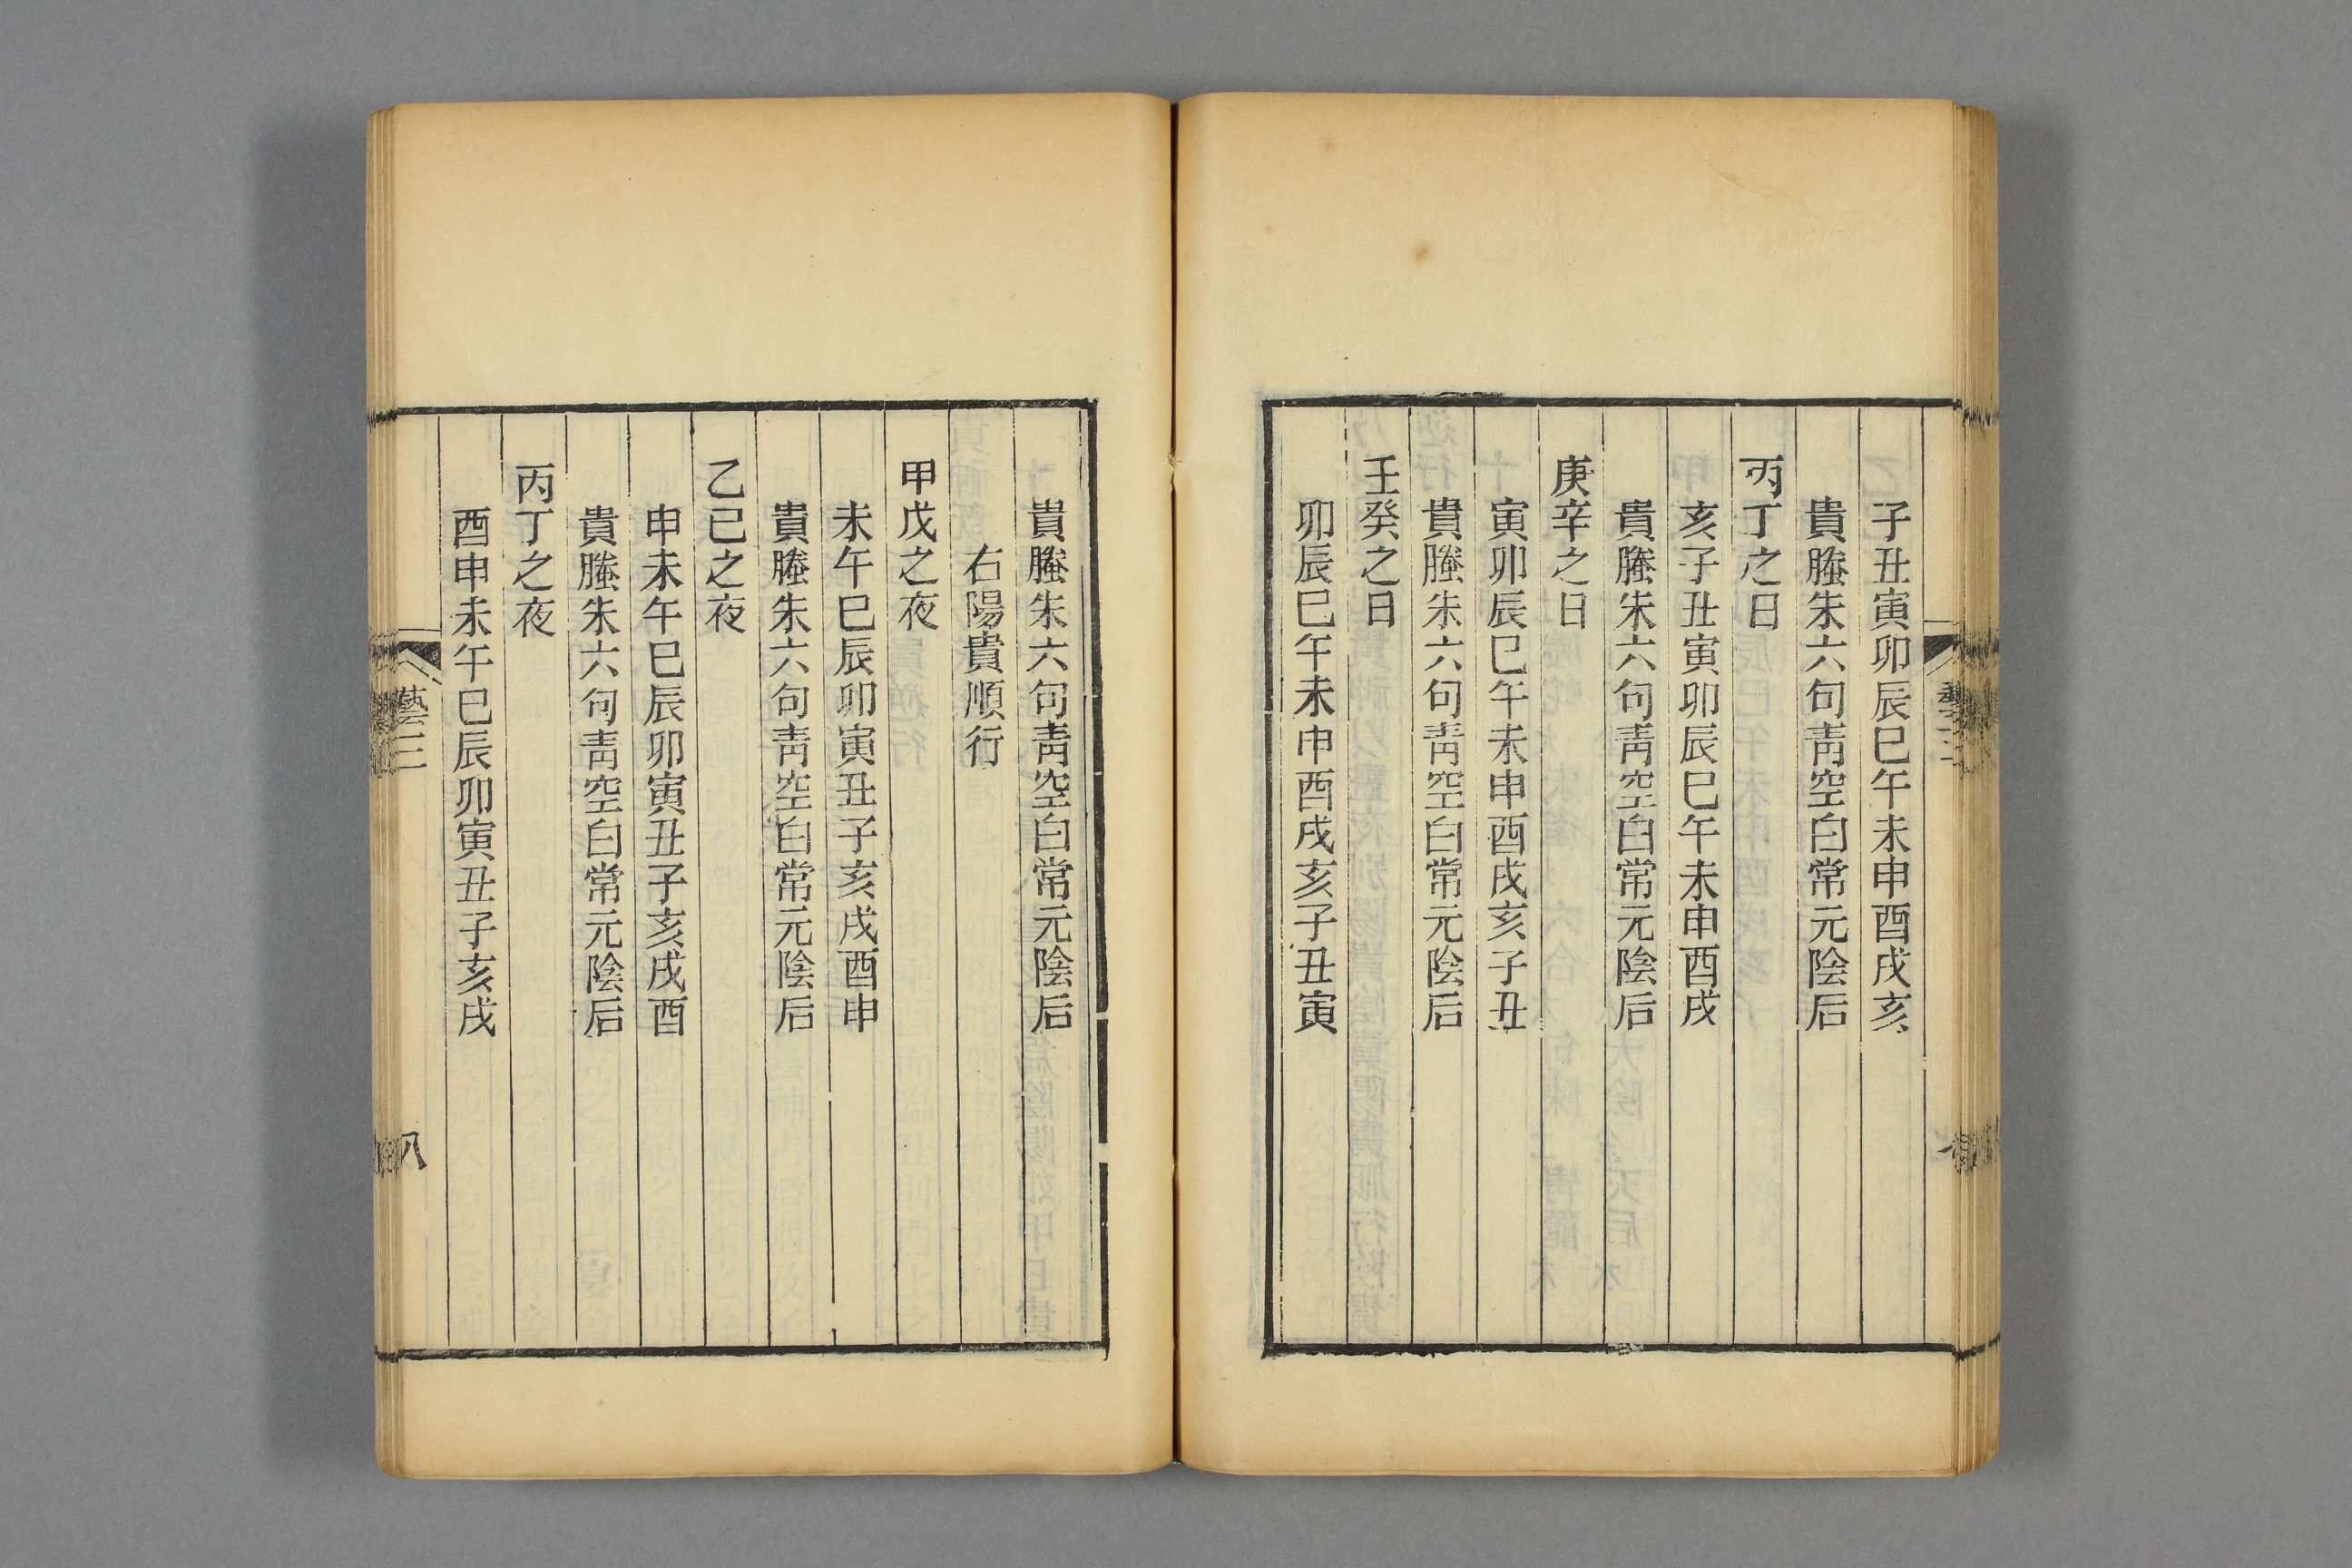 子丑寅卯辰巳午未申酉戌亥
貴螣朱六句靑空白常元陰后
丙丁之日
亥子丑寅卯辰巳午未申酉戌
貴螣朱六句靑空白常元陰后
庚辛之日
寅卯辰巳午未申酉戌亥子丑
貴螣朱六句靑空白常元陰后
壬癸之日
卯辰巳午未申酉戌亥子丑寅
貴螣朱六句靑空白常元陰后
右陽貴順行
甲戊之夜
未午巳辰卯寅丑子亥戌酉申
貴螣朱六句靑空白常元陰后
乙己之夜
申未午巳辰卯寅丑子亥戌酉
貴螣朱六句靑空白常元陰后
丙丁之夜
酉申未午巳辰卯寅丑子亥戌
藝三
八